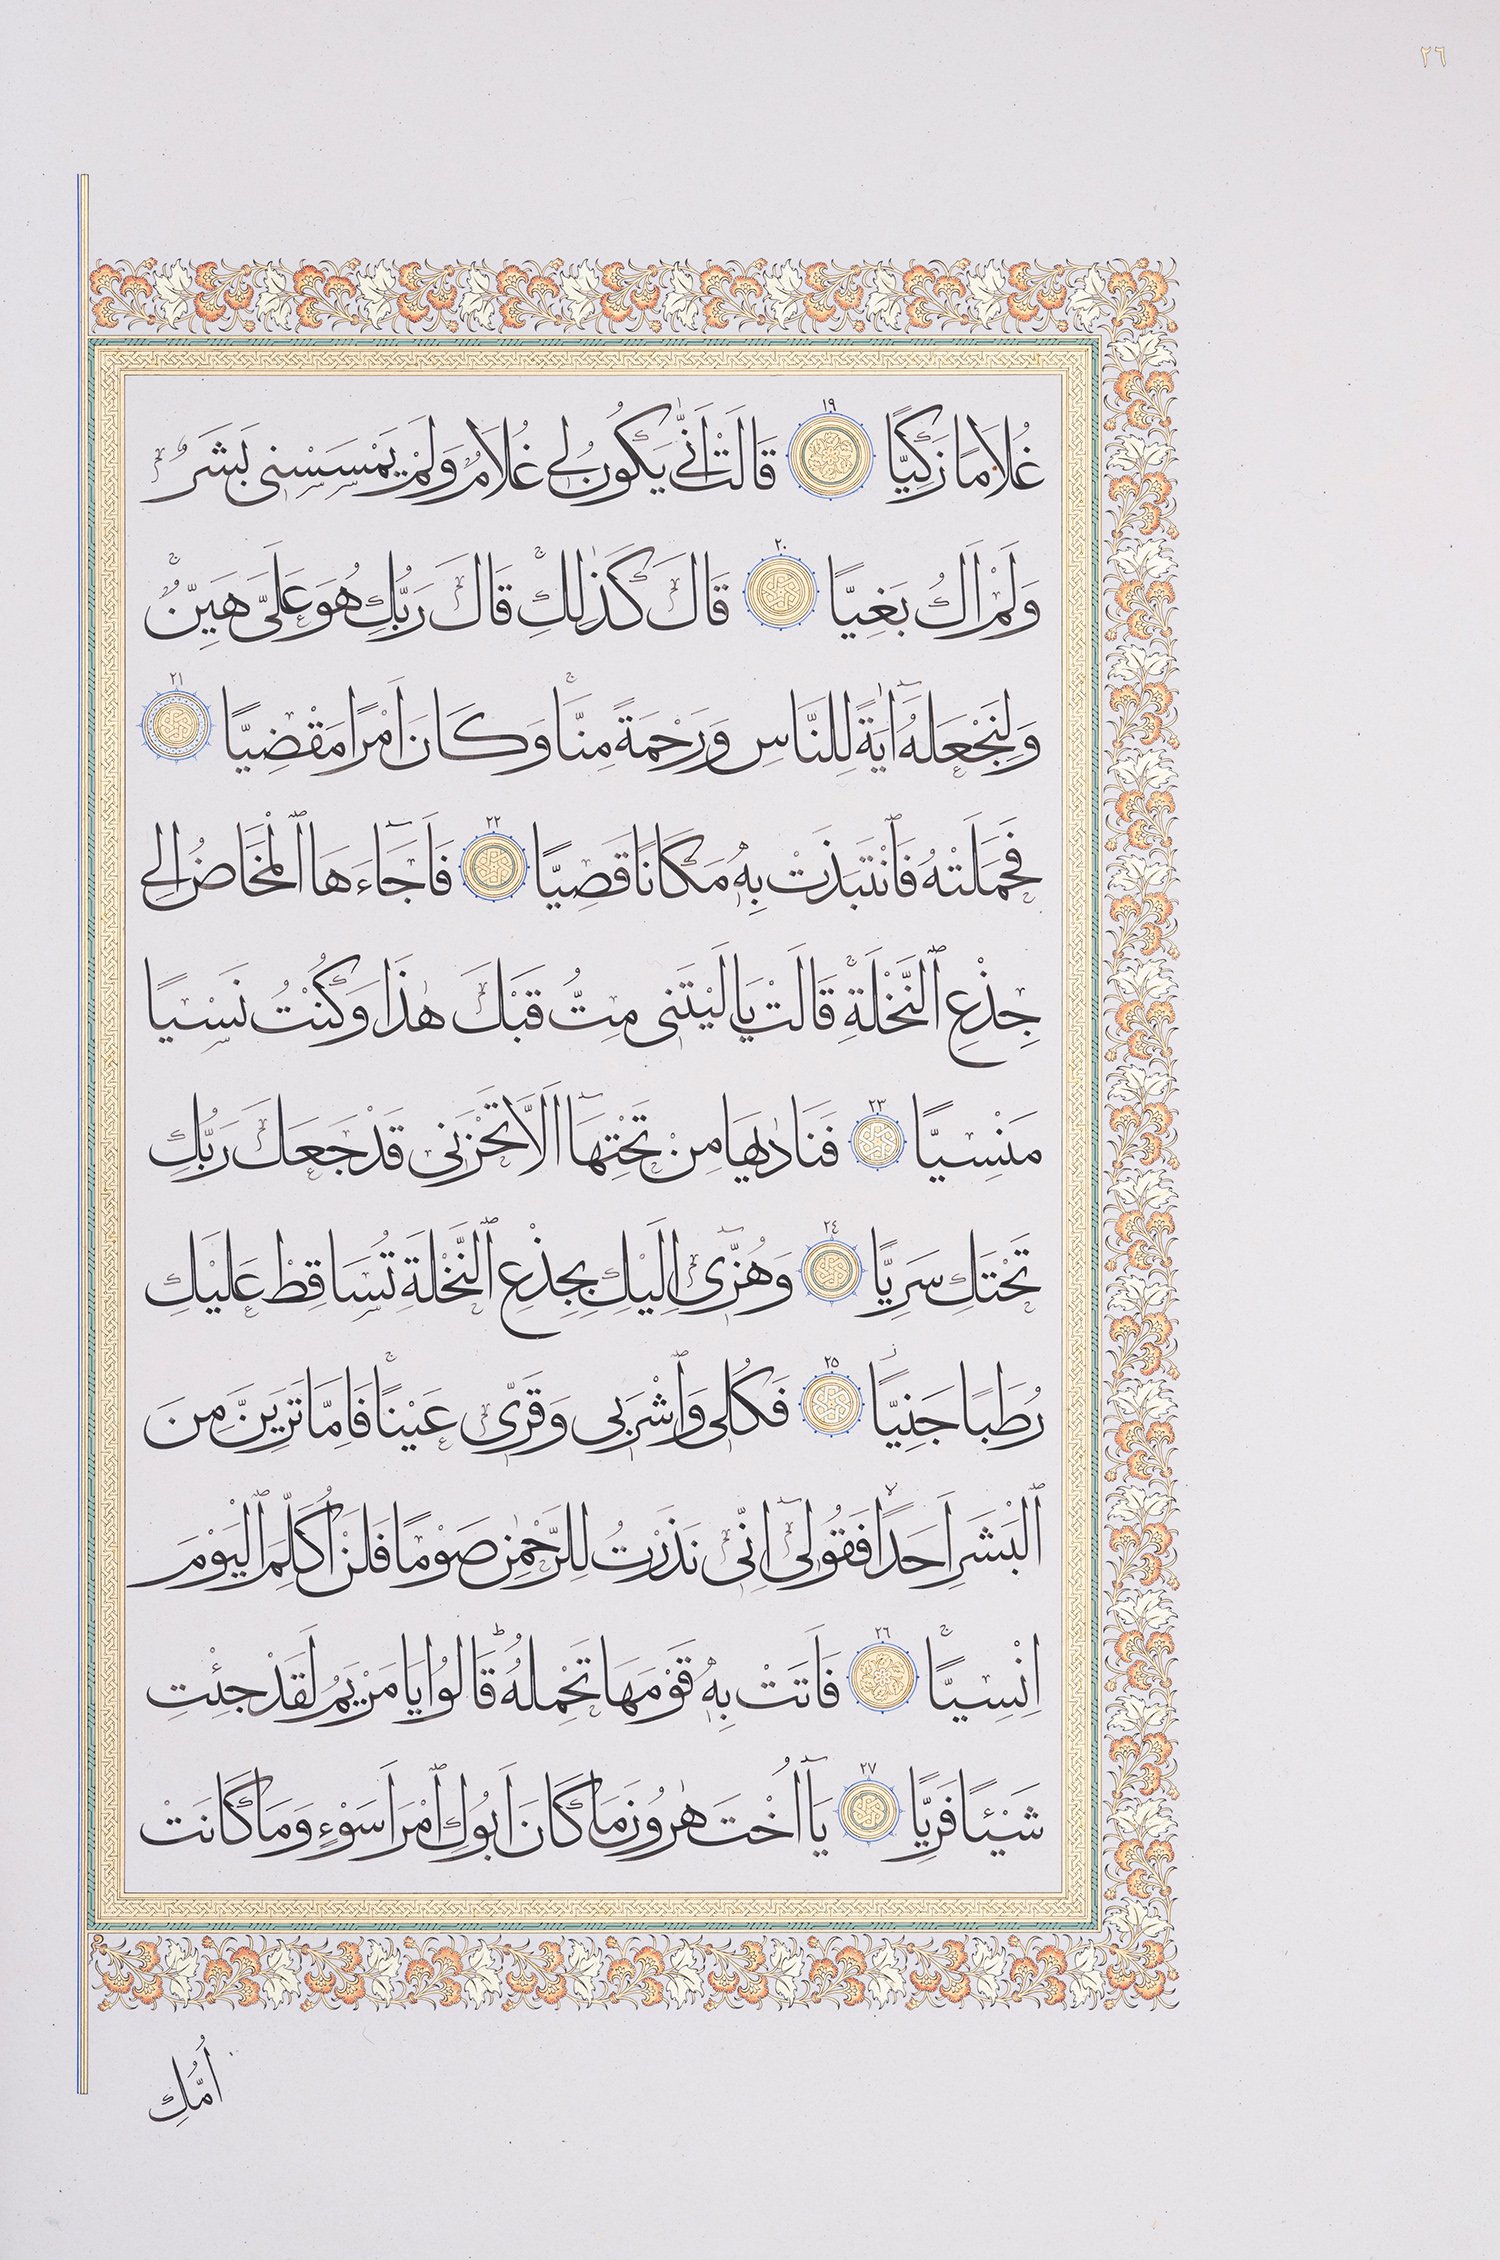 ٢٦
غُلَامًا زَكِيًّا ١٩ قَالَتْ اَنّٰى يَكُونُ لِي غُلَامٌ وَلَمْ يَمْسَسْنِي بَشَرٌ
وَلَمْ اَكُ بَغِيًّا ٢٠ قَالَ كَذٰلِكِۚ قَالَ رَبُّكِ هُوَ عَلَيَّ هَيِّنٌۚ
وَلِنَجْعَلَهُٓ اٰيَةً لِلنَّاسِ وَرَحْمَةً مِنَّاۚ وَكَانَ اَمْرًا مَقْضِيًّا ٢١
فَحَمَلَتْهُ فَٱنْتَبَذَتْ بِهٖ مَكَانًا قَصِيًّا ٢٢ فَاَجَٓاءَهَا ٱلْمَخَاضُ اِلٰى
جِذْعِ ٱلنَّخْلَةِۚ قَالَتْ يَا لَيْتَنِي مِتُّ قَبْلَ هٰذَا وَكُنْتُ نَسْيًا
مَنْسِيًّا ٢٣ فَنَادٰيهَا مِنْ تَحْتِهَٓا اَلَّا تَحْزَنِي قَدْ جَعَلَ رَبُّكِ
تَحْتَكِ سَرِيًّا ٢٤ وَهُزِّٓي اِلَيْكِ بِجِذْعِ ٱلنَّخْلَةِ تُسَاقِطْ عَلَيْكِ
رُطَبًا جَنِيًّاۘ ٢٥ فَكُلِي وَٱشْرَبِي وَقَرِّي عَيْنًاۚ فَاِمَّا تَرَيِنَّ مِنَ
ٱلْبَشَرِ اَحَدًاۙ فَقُولِٓي اِنِّي نَذَرْتُ لِلرَّحْمٰنِ صَوْمًا فَلَنْ اُكَلِّمَ ٱلْيَوْمَ
اِنْسِيًّاۚ ٢٦ فَاَتَتْ بِهٖ قَوْمَهَا تَحْمِلُهُؕ قَالُوا يَا مَرْيَمُ لَقَدْ جِئْتِ
شَيْـًٔا فَرِيًّا ٢٧ يَٓا اُخْتَ هٰرُونَ مَا كَانَ اَبُوكِ ٱمْرَاَ سَوْءٍ وَمَا كَانَتْ
اُمُّكِ